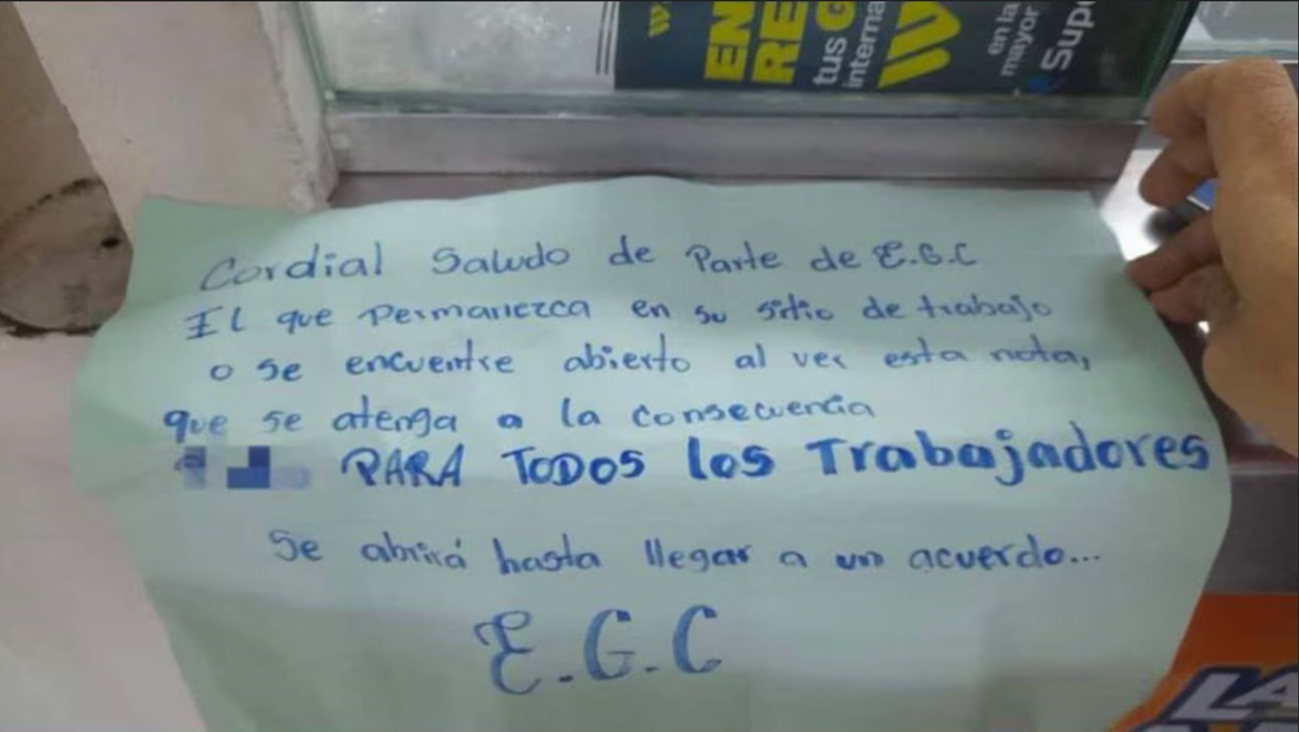 W
EN
RE
tus G
interna
W
en la
mayor
Supe
Cordial Saludo de Parte de E.G.C
El que Permanezca en su sitio de trabajo
o se encuentre abierto al ver esta nota,
que se atenga a la consecuencia
PARA TODOS los Trabajadores
Se abrirá hasta llegar a un acuerdo...
E.G.C
LA